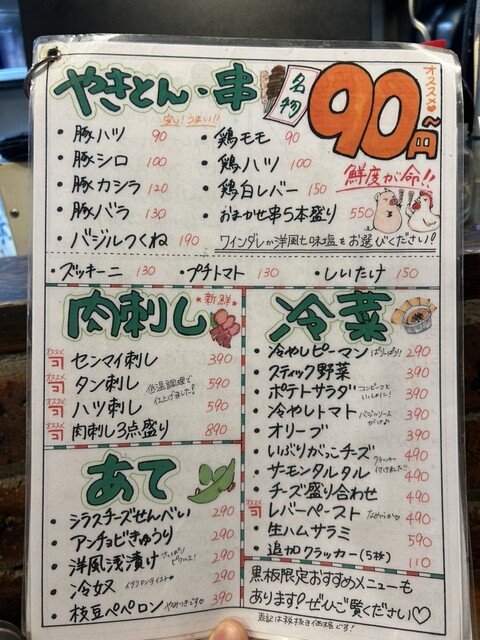 やきとん・串
安い!うまい!!
名物
90円〜
オススメ♥
鮮度が命!!
・豚ハツ 90
・豚シロ 100
・豚カシラ 120
・豚バラ 130
・バジルつくね 190
・鶏モモ 90
・鶏ハツ 100
・鶏白レバー 150
・おまかせ串5本盛り 550
ワインダレか洋風七味塩をお選びください!
・ズッキーニ 130 ・プチトマト 130 ・しいたけ 150
肉刺し
新鮮
センマイ刺し 390
タン刺し 590
ハツ刺し 590
肉刺し3点盛り 890
低温調理で
仕上げました!
あて
・シラスチーズせんべい 290
・アンチョビきゅうり 290
・洋風浅漬け さっぱりピクルス! 290
・冷奴 イタリアンテイスト 290
・枝豆ペペロン やみつきです♡ 390
冷菜
・冷やしピーマン ぱりっぱり! 290
・スティック野菜 390
・ポテトサラダ コンビーフといっしょに! 390
・冷やしトマト バジルソースがけ♪ 390
・オリーブ 390
・いぶりがっこチーズ 490
クラッカー付けました!!
・サーモンタルタル 490
・チーズ盛り合わせ 490
レバーペースト なめらか♡ 490
・生ハムサラミ 590
・追加クラッカー(5枚) 110
黒板限定おすすめメニューも
あります!ぜひご覧ください♡
表記は税抜き価格です!